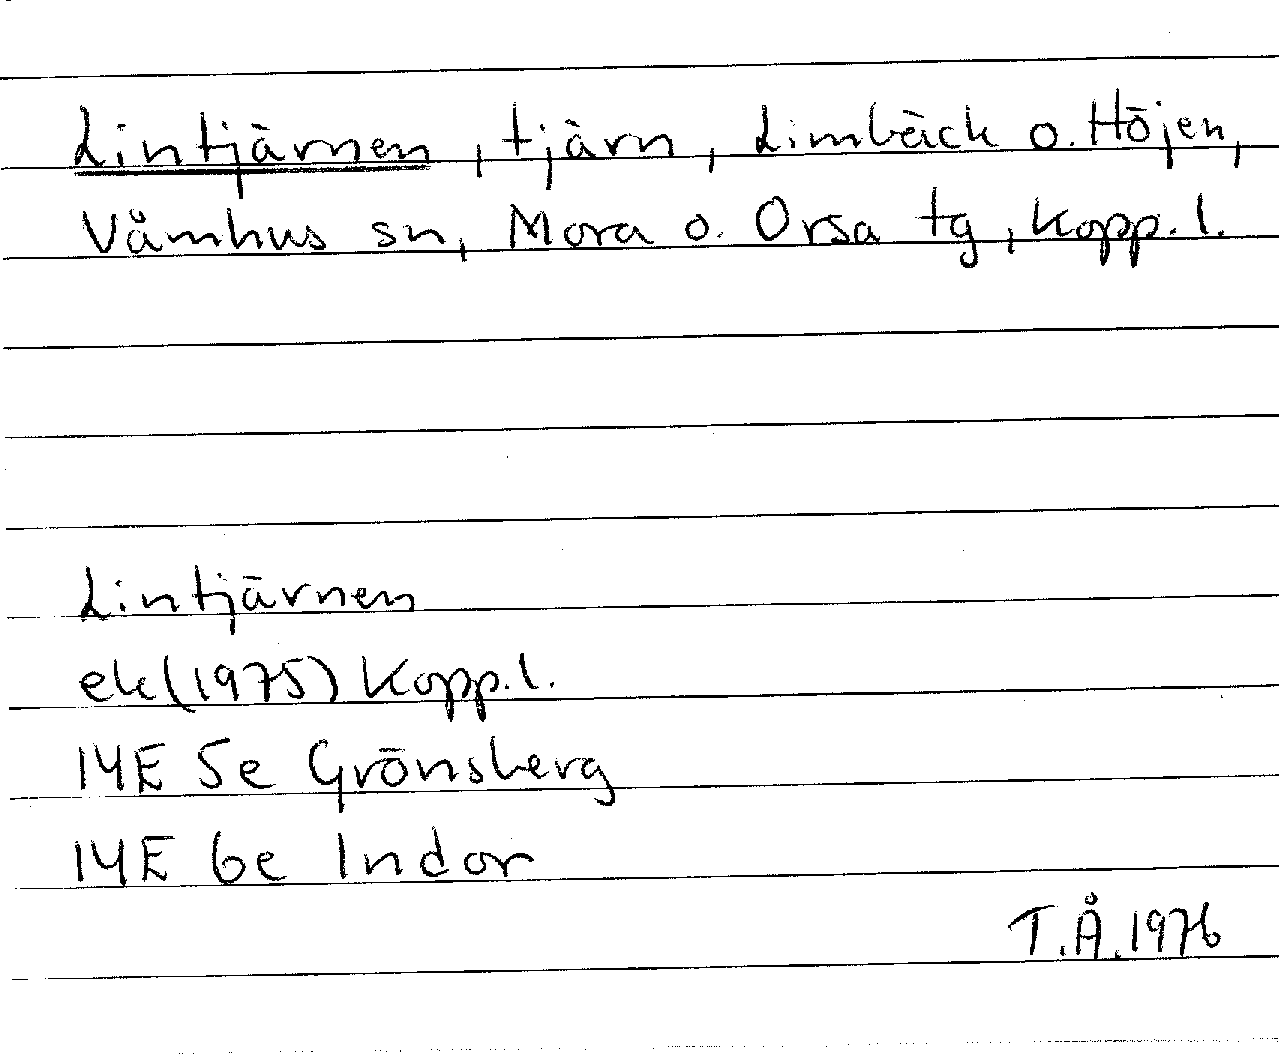 Lintjärnen, tjärn, Limbäck o. Höjen,
Våmhus sn, Mora o. Orsa tg, Kopp. l.
Lintjärnen
ek(1975) Kopp.l.
14E 5e Grönsberg
14E 6e Indor
T.Å.1976